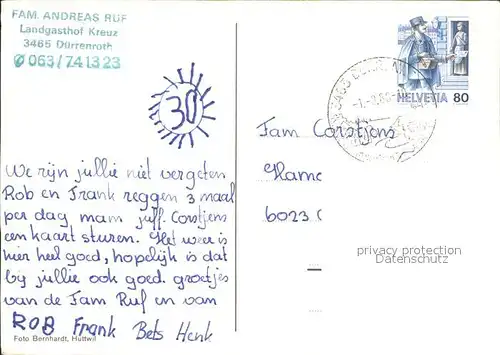 FAM. ANDREAS RUF
Landgasthof Kreuz
3465 Dürrenroth
✆ 063/741323
30
HELVETIA 80
We zijn jullie niet vergeten
Rob en Frank zeggen 3 maal
per dag mam juff. Corstjens
een kaart sturen. Het weer is
hier heel goed, hopelijk is dat
bij jullie ook goed. groetjes
van de Fam Ruf en van
ROB Frank Bets Henk
Foto Bernhardt, Huttwil
Fam Corstjens
Hame
6023
privacy protection
Datenschutz